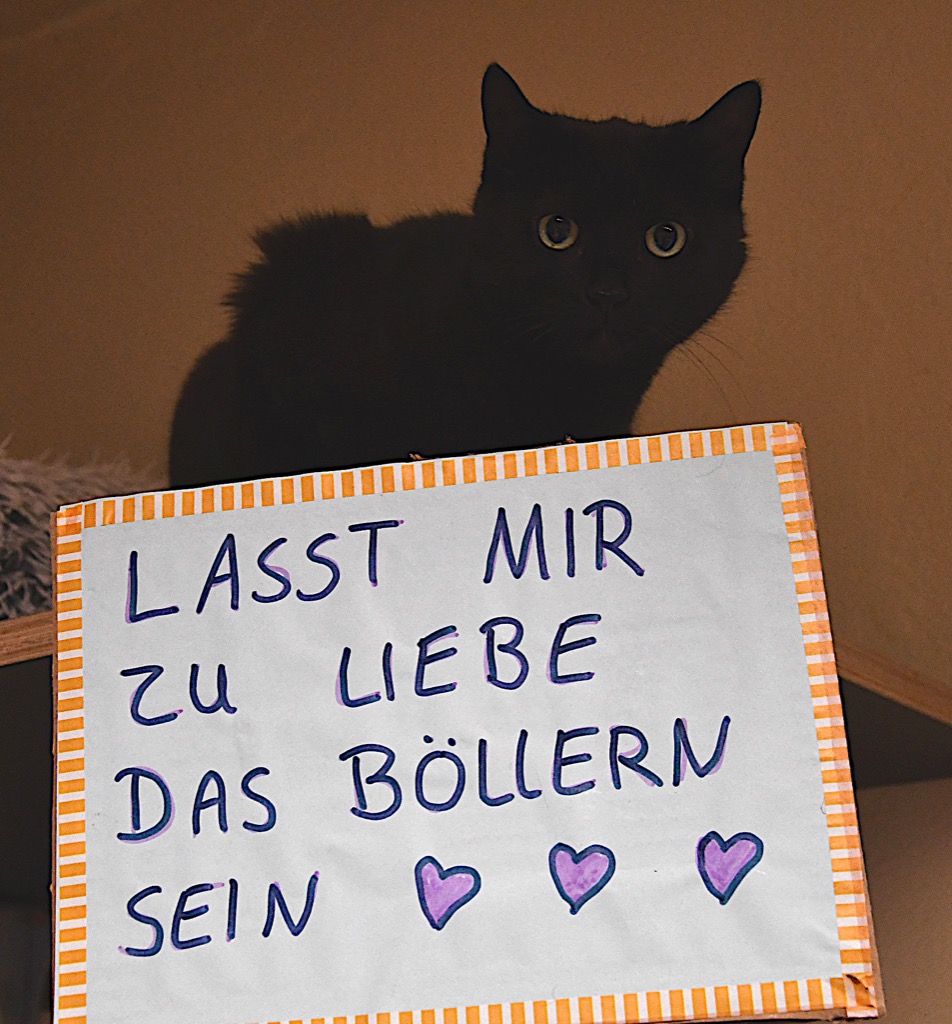 LASST MIR
ZU LIEBE
DAS BÖLLERN
SEIN